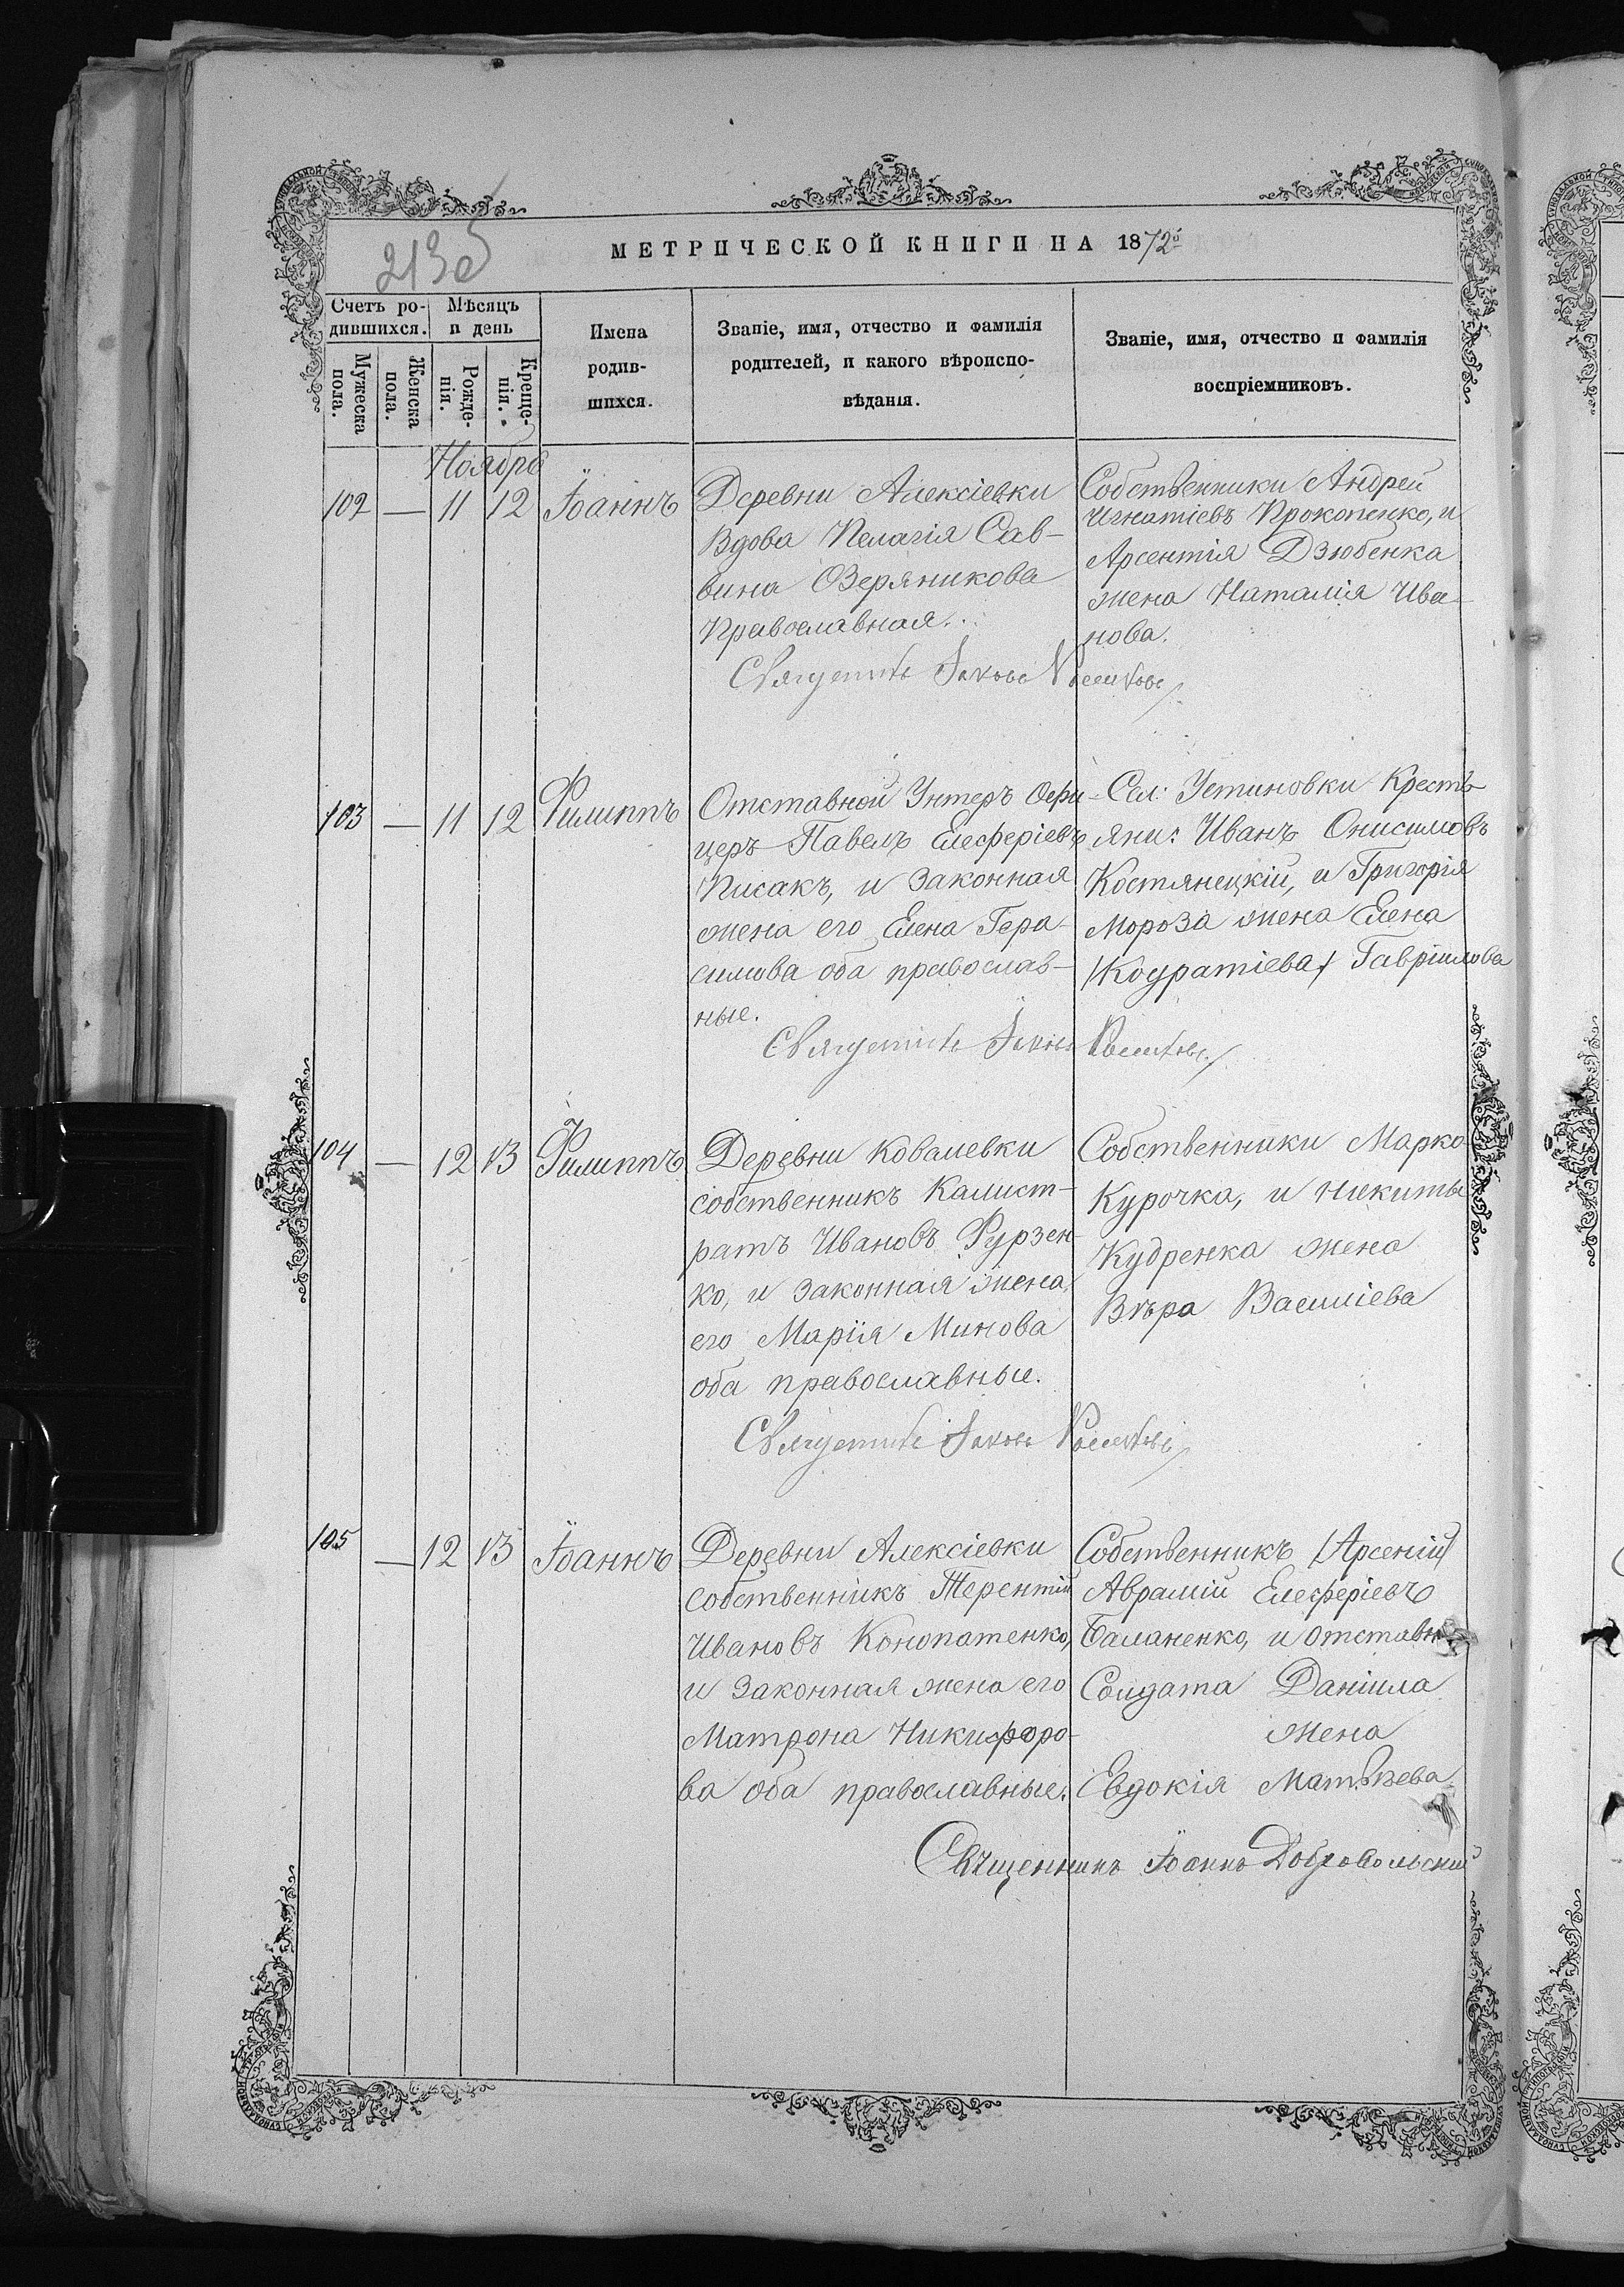 МЕТРИЧЕСКОЙ КНИГИ НА 1872й
Счетъ ро-
дившихся.
Мѣсяцъ
и день
Мужеска
пола.
Женска
пола.
Рожде-
нія.
Креще-
нія.
Имена
родив-
шихся.
Званіе, имя, отчество и фамилія
родителей, и какого вѣроиспо-
вѣданія.
Званіе, имя, отчество и фамилія
воспріемниковъ.
Ноября
102 — 11 12 Іоаннъ
Деревни Алексіевки
Вдова Пелагія Сав-
вина Озерянникова
Православная.
Собственники Андрей
Игнатіевъ Прокопенко, и
Арсентія Дзюбенка
жена Наталія Ива-
нова.
Іаковъ
103 — 11 12 Филиппъ
Отставной Унтеръ Офи-
церъ Павелъ Елесферіевъ
Писакъ, и законная
жена его Елена Гера-
симова оба православ-
ные.
Сел: Устиновки Кресть-
яни: Иванъ Онисимовъ
Костянецкій, и Григорія
Мороза жена Елена
/Кодратіева/ Гавріилова
Іаковъ
104 — 12 13 Филиппъ
Деревни Ковалевки
собственникъ Калист-
ратъ Ивановъ Фурзен-
ко, и законная жена
его Марія Минова
оба православные.
Собственники Марко
Курочка, и Никиты
Кудренка жена
Вѣра Василіева
Іаковъ
105 — 12 13 Іоаннъ
Деревни Алексіевки
собственникъ Терентій
Ивановъ Конопатенко,
и законная жена его
Матрона Никифоро-
ва оба православные.
Собственникъ /Арсеній/
Аврамій Елесферіевъ
Баланенко, и отставн
Солдата Даніила
жена
Евдокія Матѳѣева
Священникъ Іоаннъ Добровольскій